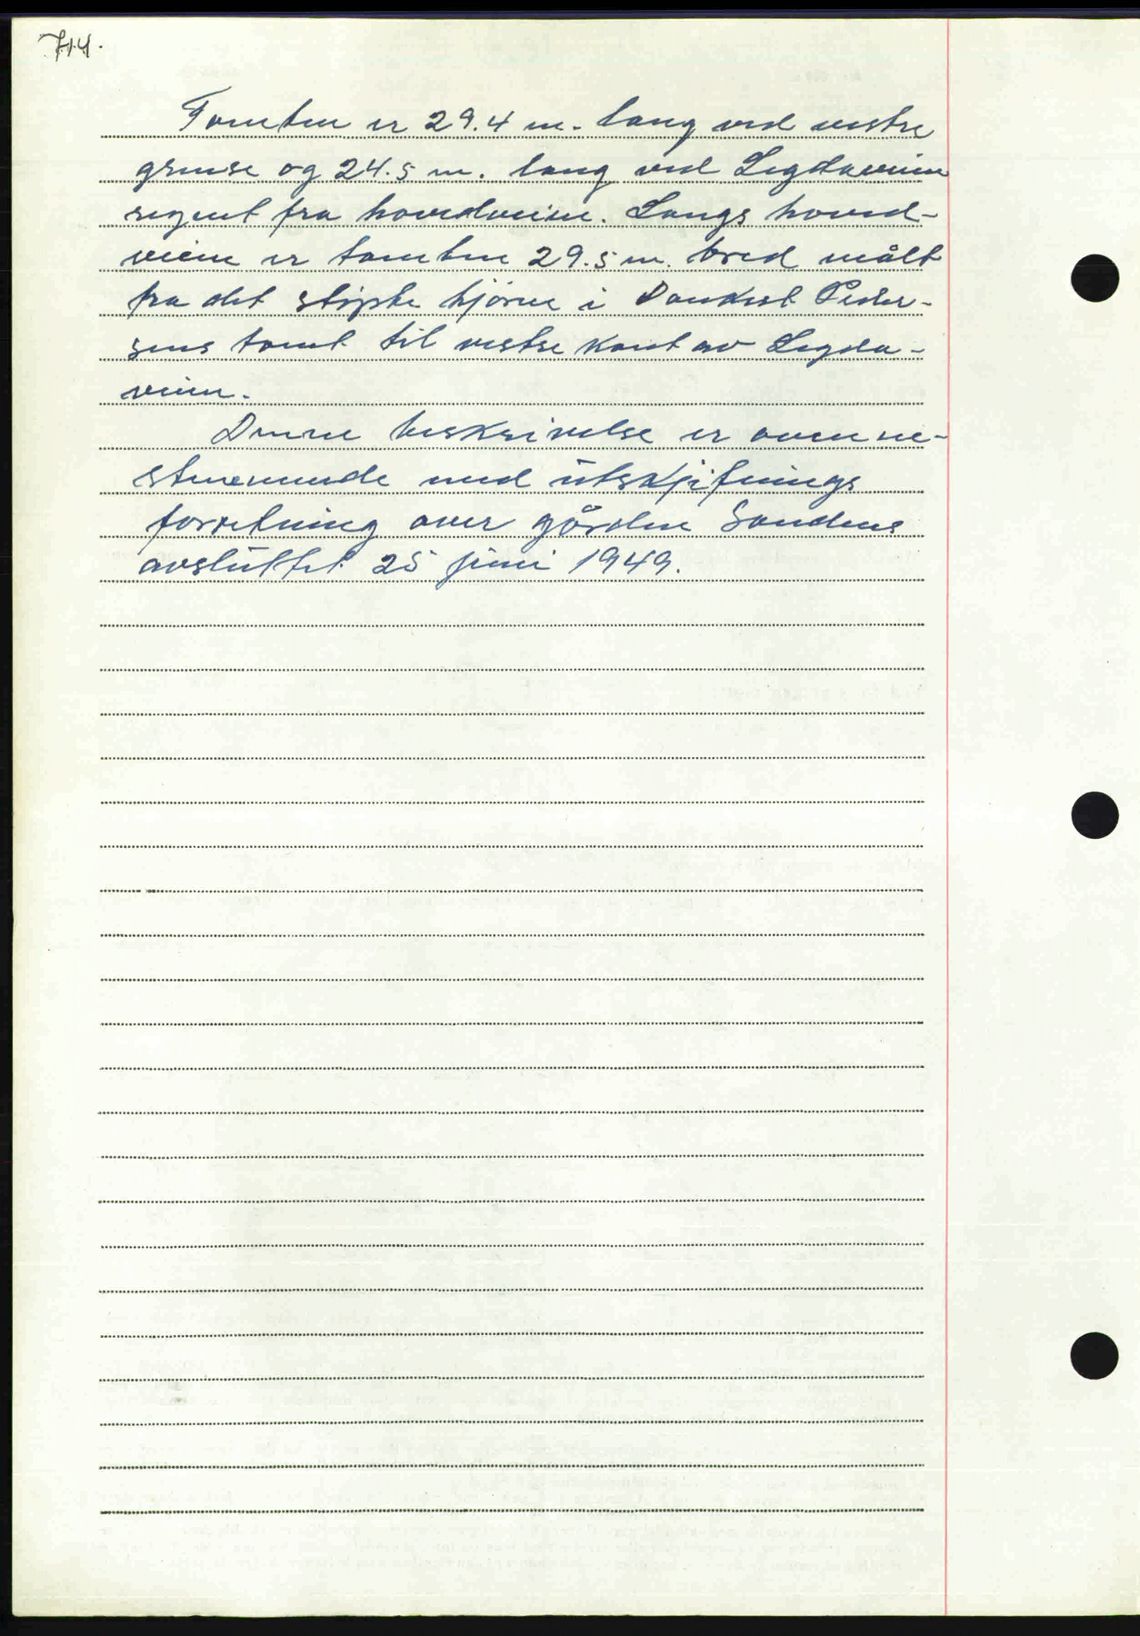 714.
Tomten er 29.4 m. lang ved vestre
grense og 24.5 m. lang ved Legdaveien
regent fra hovedveien. Langs hoved-
veien er tomten 29.5 m. bred målt
fra det skjøte hjørne i Peder-
sens tomt til vestre kant av Legda-
veien.
Denne beskrivelse er overens-
stemmende med utskjiftnings
forretning over gården Sandens
avsluttet 25 juni 1949.